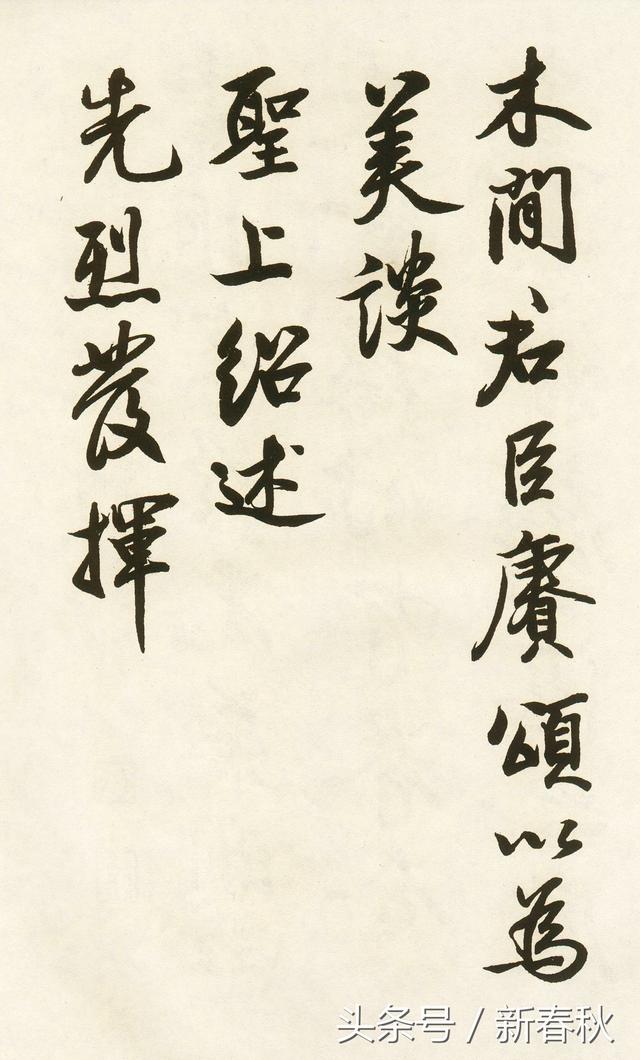 末簡君臣賡頌以為
美談
聖上紹述
先烈發揮
头条号 / 新春秋